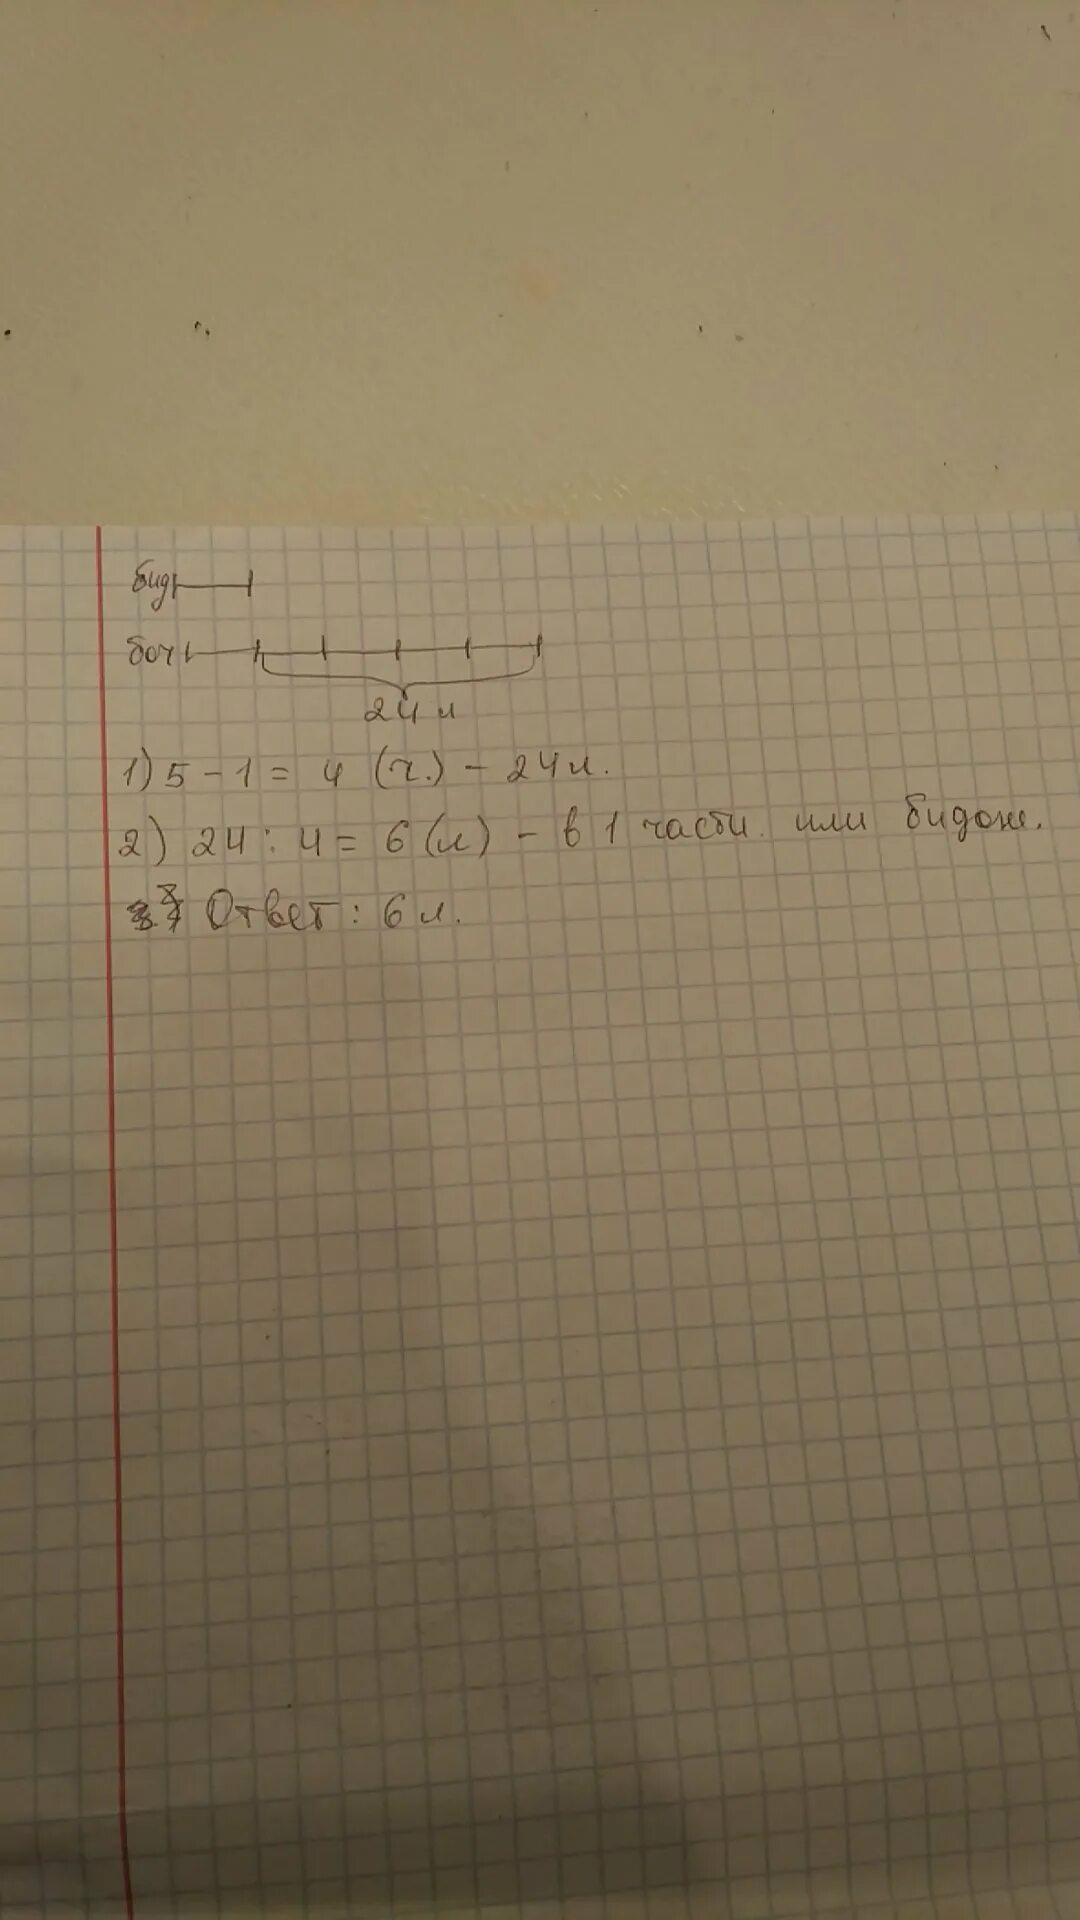 бид
боч
24 л
1) 5 - 1 = 4 (ч.) - 24 л.
2) 24 : 4 = 6 (л) - в 1 части или бидоне.
Ответ : 6 л.